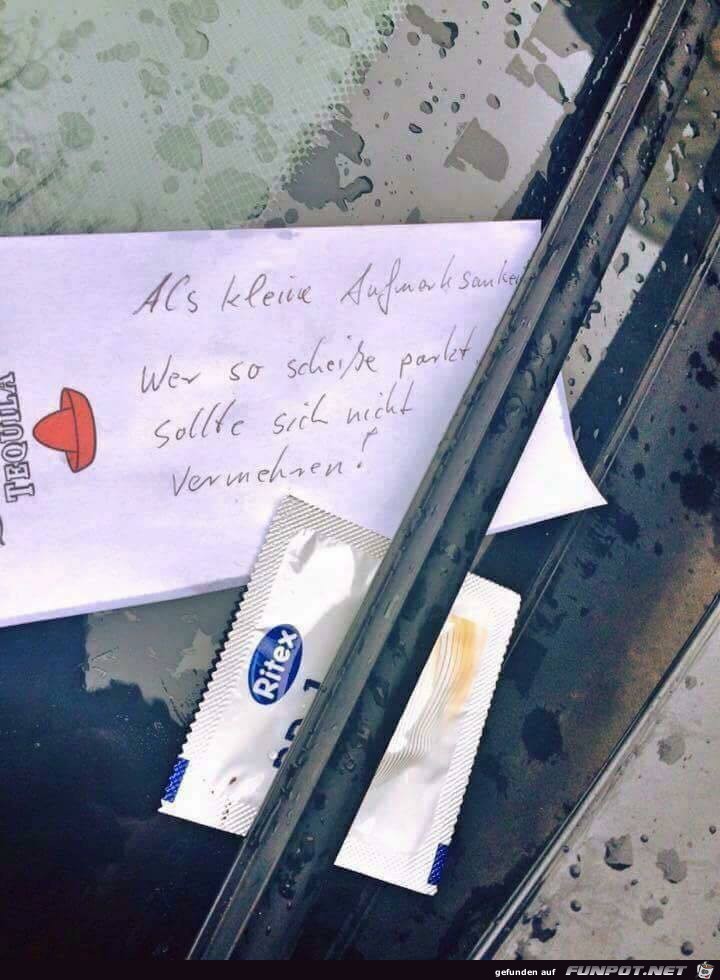 Als kleine Aufmerksamkei
Wer so scheiße parkt,
sollte sich nicht
vermehren!
TEQUILA
Ritex
gefunden auf FUNPOT.NET